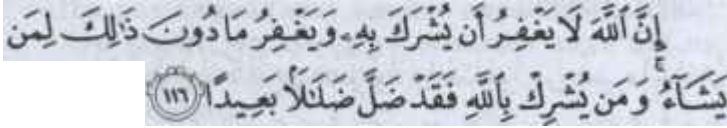 إِنَّ ٱللَّهَ لَا يَغْفِرُ أَن يُشْرَكَ بِهِۦ وَيَغْفِرُ مَا دُونَ ذَٰلِكَ لِمَن
يَشَآءُ ۚ وَمَن يُشْرِكْ بِٱللَّهِ فَقَدْ ضَلَّ ضَلَـٰلًۢا بَعِيدًا ﴿١١٦﴾